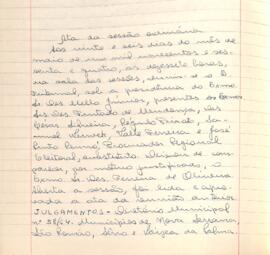 Ata da sessão ordinária
Aos vinte e seis dias do mês de
maio de mil novecentos e ses-
senta e quatro, às dezessete horas,
na sala das sessões, reuniu-se o E.
Tribunal, sob a presidência do Exmo.
Sr. Des. Mello Júnior, presentes os Exmos
Srs. Des. Furtado de Mendonça, Drs.
César Silveira,
Werneck, Valle Ferreira e José
Procurador Regional
Eleitoral, substituto. Deixou de com-
parecer, por motivo justificado, o
Exmo. Sr. Des. Ferreira de Oliveira.
Aberta a sessão, foi lida e apro-
vada a ata da reunião anterior.
JULGAMENTOS - Diretório Municipal
nº 58/64. Municípios de Nova Serrana,
São Romão, e Varzea da Palma.